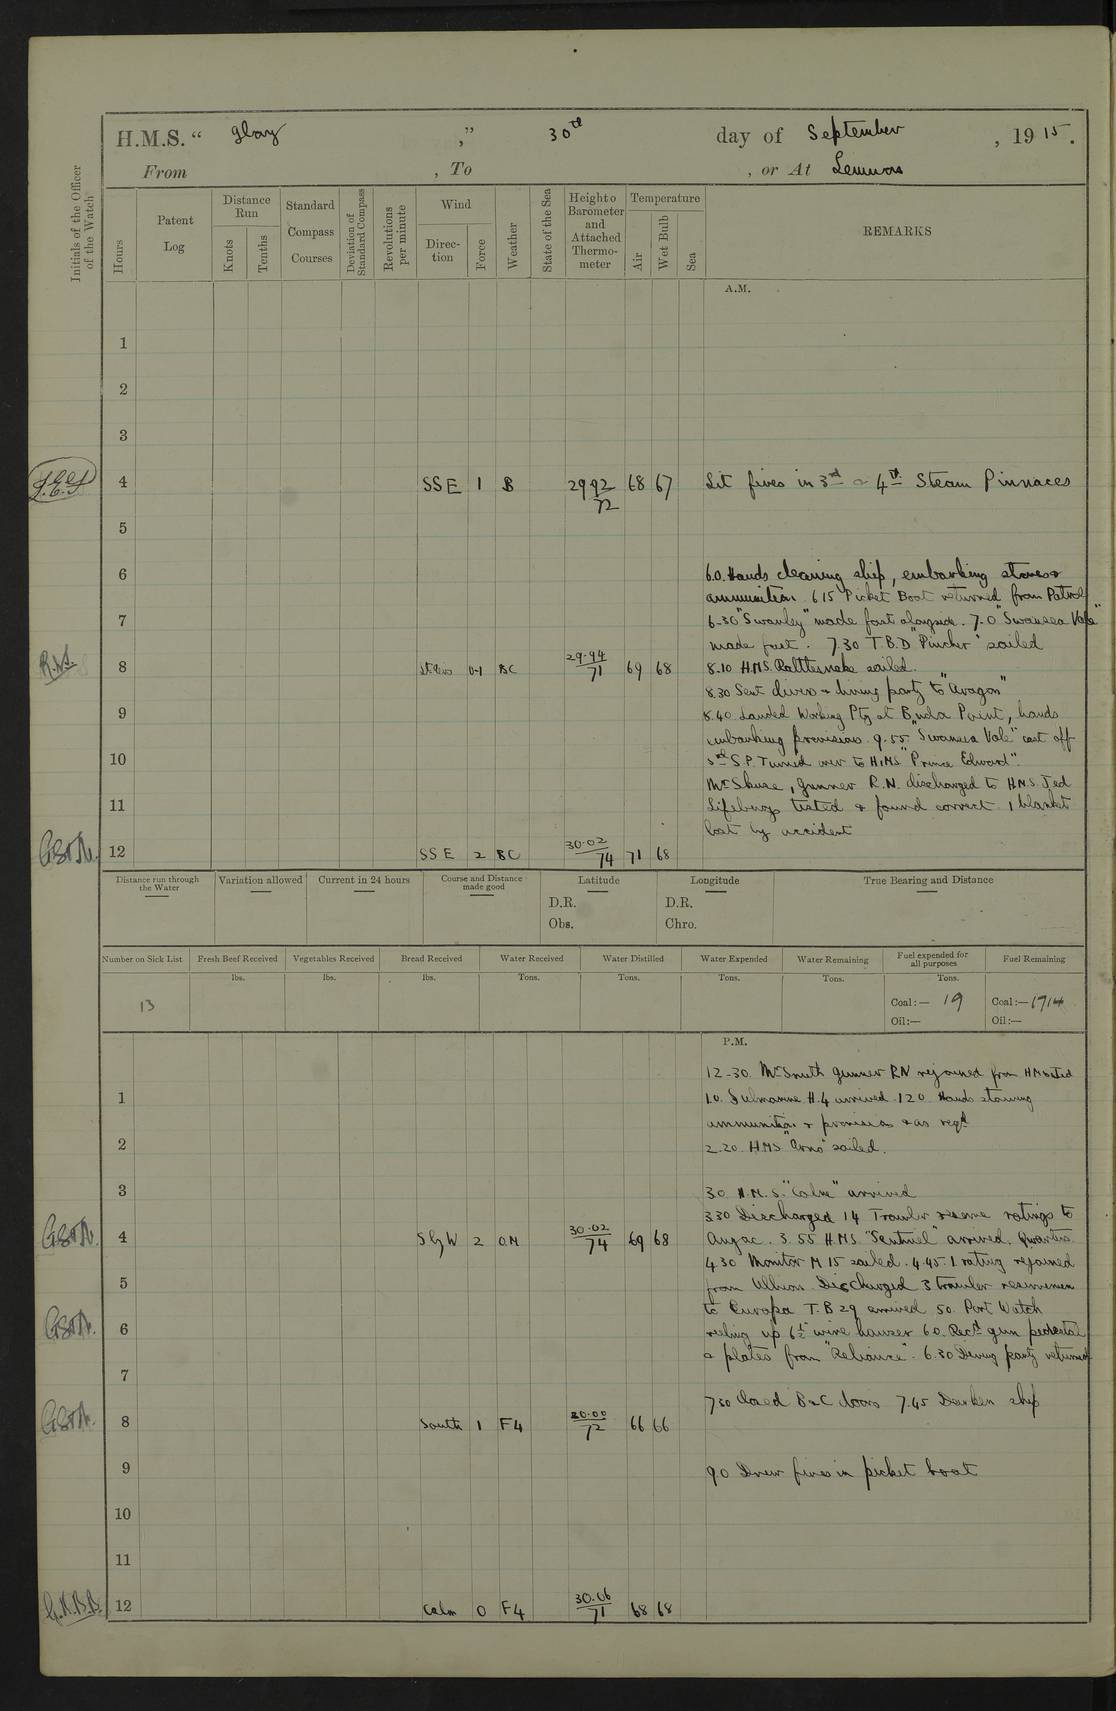 H.M.S. “ Glory ,” 30th day of September , 1915.
From , To , or At Lemnos
Initials of the Officer of the Watch
Hours
Patent Log
Distance Run
Knots
Tenths
Standard Compass Courses
Deviation of Standard Compass
Revolutions per minute
Wind
Direc-tion
Force
Weather
State of the Sea
Height o Barometer and Attached Thermo-meter
Temperature
Air
Wet Bulb
Sea
REMARKS
A.M.
1
2
3
4 SSE 1 B 29 92 / 72 68 67 Lit fires in 3rd & 4th Steam Pinnaces
5
6 6.0. Hands cleaning ship, embarking stores &
ammunition 6 15 Picket Boat returned from Patrol
7 6-30 "Swanley" made fast alongside. 7.0 "Swansea Vale"
made fast. 7.30 T.B.D "Pincher" sailed
8 0-1 BC 29.94 / 71 69 68 8.10 H.M.S. Rattlesnake sailed.
8.30 Sent divers & diving party to "Aragon"
9 8.40 Landed Working Pty at Point, hands
embarking provisions. 9.55 "Swansea Vale" cast off
10 3rd S.P Turned over to HMS "Prince Edward".
Mr Skuse, Gunner R.N. discharged to H.M.S. Jed
11 Lifebuoys tested & found correct 1 blanket
lost by accident
12 SSE 2 BC 30.02 / 74 71 68
Distance run through the Water
Variation allowed
Current in 24 hours
Course and Distance made good
Latitude
D.R.
Obs.
Longitude
D.R.
Chro.
True Bearing and Distance
Number on Sick List
Fresh Beef Received
Vegetables Received
Bread Received
Water Received
Water Distilled
Water Expended
Water Remaining
Fuel expended for all purposes
Fuel Remaining
lbs. lbs. lbs. Tons. Tons. Tons. Tons. Tons.
13 Coal:— 19 Coal:—1714
Oil:— Oil:—
P.M.
12-30. Mr Smith gunner RN rejoined from HMS Jed
1 1.0. Submarine H.4 arrived 1 20 Hands stowing
ammunition & provisions & as reqd
2 2.20. HMS "Arno" sailed.
3 3 0. H.M.S. "Colne" arrived
3 30 Discharged 14 Trawler reserve ratings to
4 S by W 2 OM 30.02 / 74 69 68 3.55 HMS "Sentinel" arrived. Quarters.
4 30 Monitor M 15 sailed. 4.45. 1 rating rejoined
5 from Albion Discharged 3 trawler reservemen
to Europa T.B 29 arrived 5 0. Port Watch
6 reeling up 6½" wire hawser 6 0. Recd gun pedestal
& plates from "Reliance". 6.30 Diving party returned
7
7 30 Closed B & C doors 7.45 Darken ship
8 South 1 F4 30.00 / 72 66 66
9 9 0 Drew fires in picket boat
10
11
12 Calm 0 F4 30.06 / 71 68 68